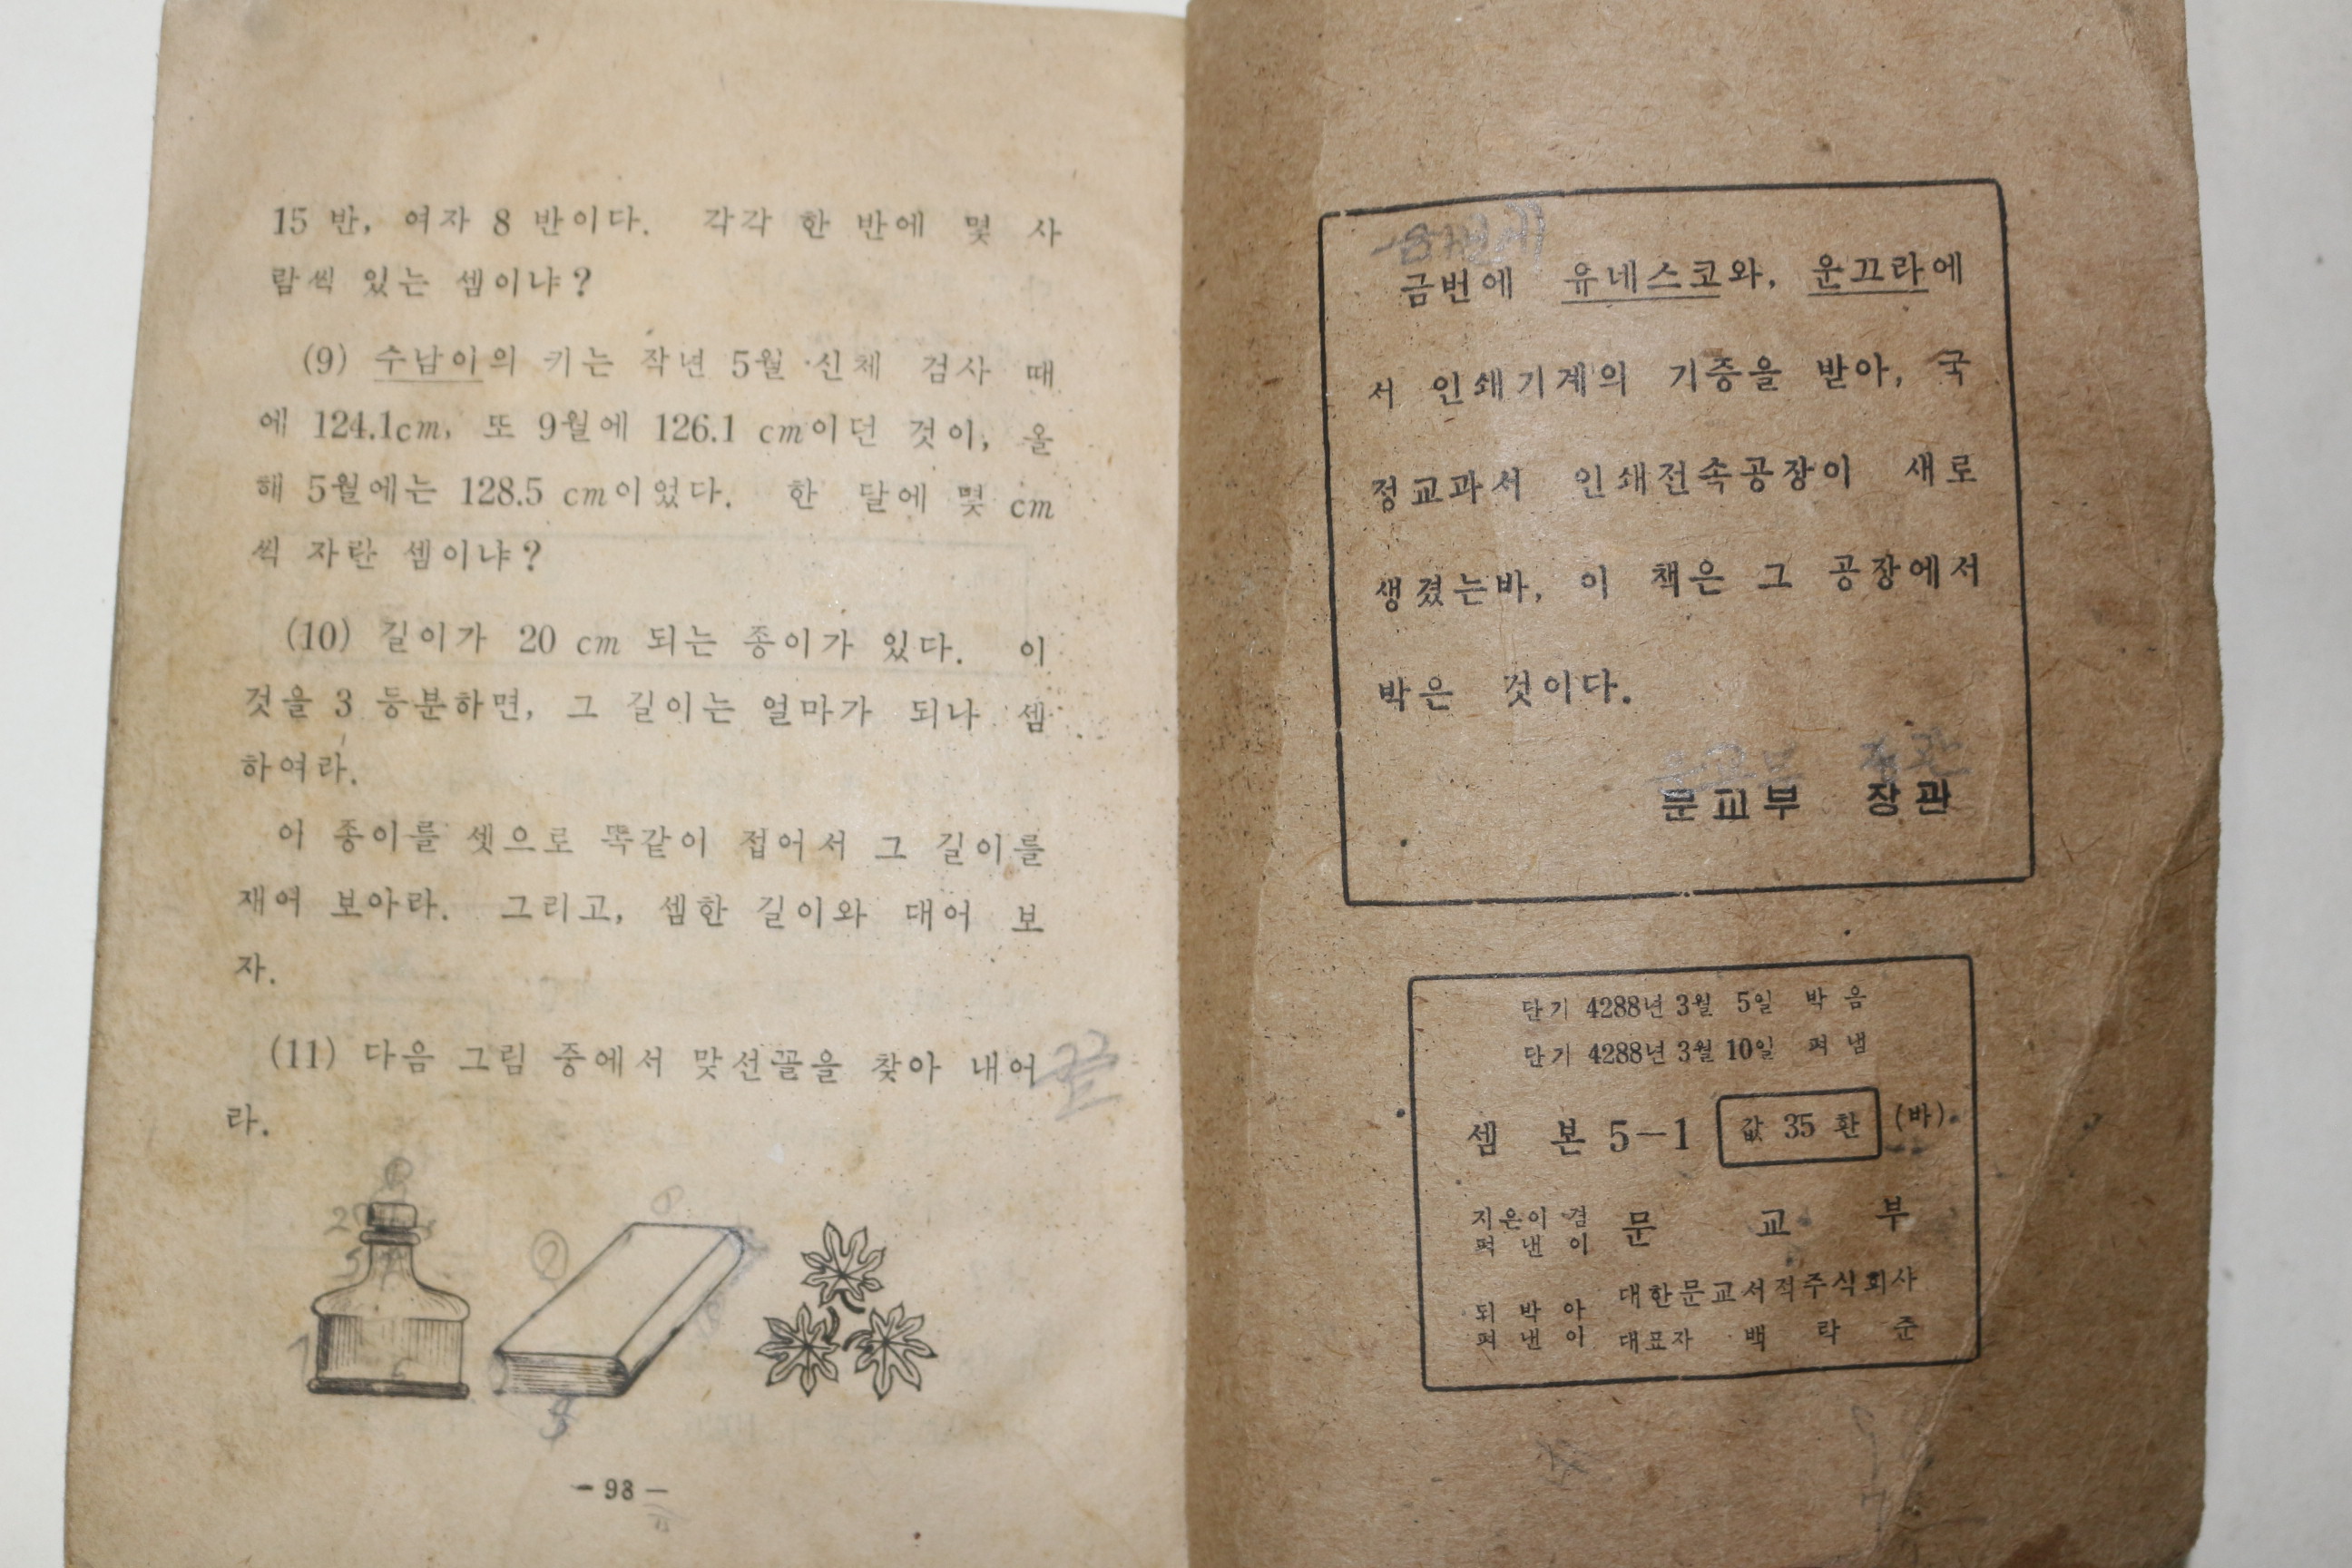 15 반, 여자 8 반이다. 각각 한 반에 몇 사
람씩 있는 셈이냐?
(9) 수남이의 키는 작년 5월 신체 검사 때
에 124.1cm, 또 9월에 126.1 cm이던 것이, 올
해 5월에는 128.5 cm이었다. 한 달에 몇 cm
씩 자란 셈이냐?
(10) 길이가 20 cm 되는 종이가 있다. 이
것을 3 등분하면, 그 길이는 얼마가 되나 셈
하여라.
이 종이를 셋으로 똑같이 접어서 그 길이를
재어 보아라. 그리고, 셈한 길이와 대어 보
자.
(11) 다음 그림 중에서 맞선꼴을 찾아 내어
라.
끝
- 98 -
금번에
금번에 유네스코와, 운끄라에
서 인쇄기계의 기증을 받아, 국
정교과서 인쇄전속공장이 새로
생겼는바, 이 책은 그 공장에서
박은 것이다.
문교부 장관
문교부 장관
단기 4288년 3월 5일 박음
단기 4288년 3월 10일 펴냄
셈 본 5-1 값 35 환 (바)
지은이 겸
펴 낸 이 문 교 부
되 박 아 대한문교서적주식회사
펴 낸 이 대표자 백 락 준